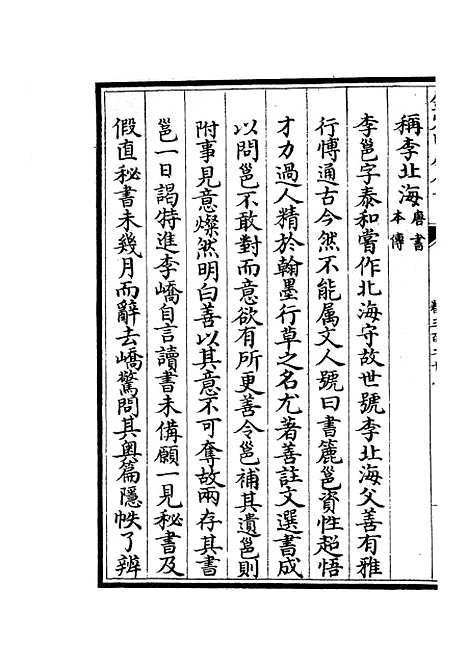 稱李北海唐書本傳
李邕字泰和嘗作北海守故世號李北海父善有雅
行博通古今然不能属文人號曰書簏邕資性超悟
才力過人精於翰墨行草之名尤著善註文選書成
以問邕不敢對而意欲有所更善令邕補其遺邕則
附事見意燦然明白善以其意不可奪故兩存其書
邕一日謁特進李嶠自言讀書未備願一見秘書及
假直秘書未幾月而辭去嶠驚問其奥篇隱帙了辨